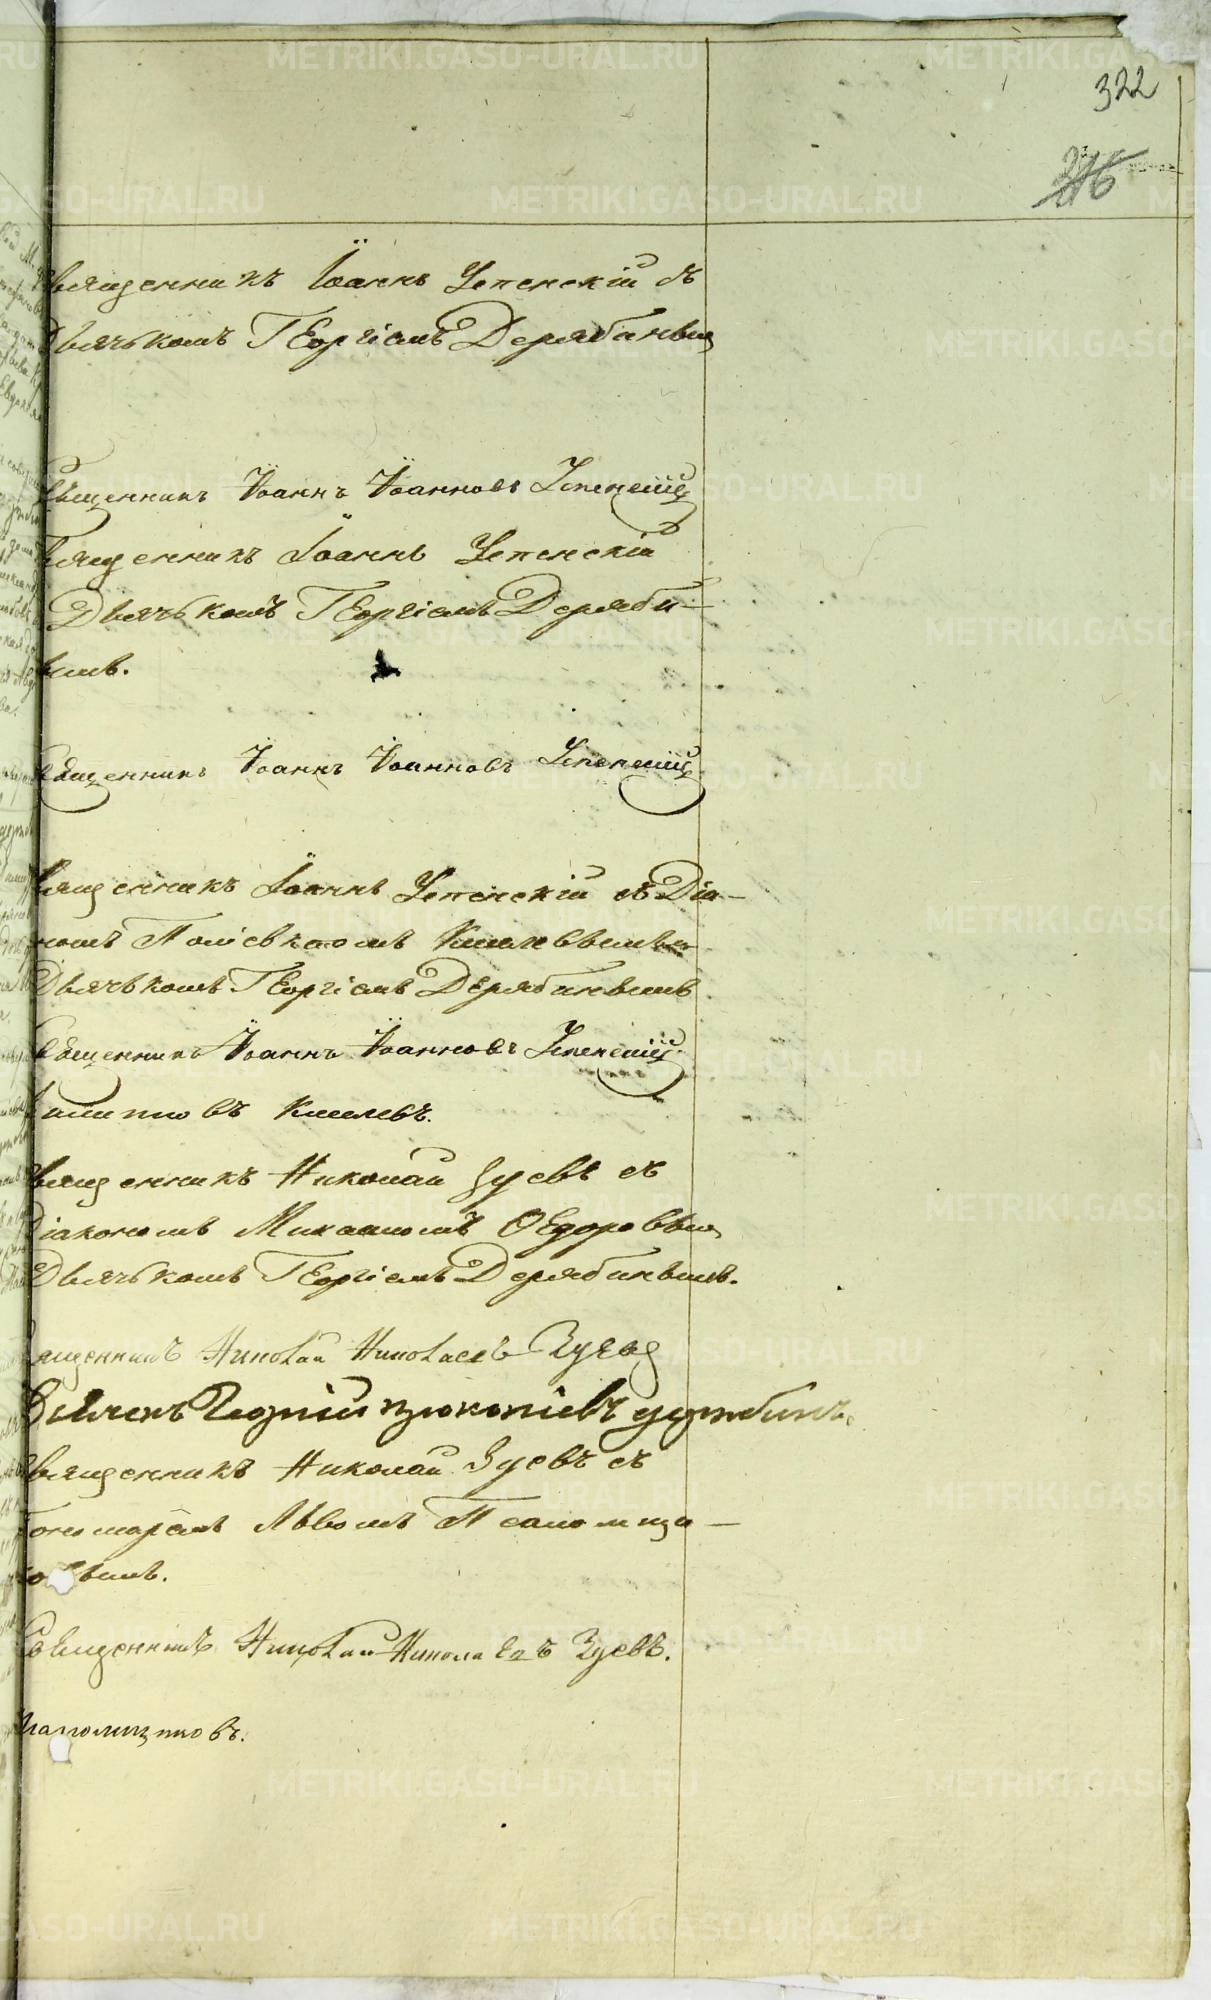 322
216
Священникъ Іоаннъ Успенскій съ
Дьячькомъ Георгіемъ Дерябинымъ
Священникъ Іоаннъ Іоанновъ Успенскій
Священникъ Іоаннъ Успенскій
Дьячькомъ Георгіемъ Деряби-
нымъ.
Священникъ Іоаннъ Іоанновъ Успенскій
Священникъ Іоаннъ Успенскій съ Діа-
кономъ
Дьячькомъ Георгіемъ Дерябинымъ
Священникъ Іоаннъ Іоанновъ Успенскій
Священникъ Николай Зуевъ съ
Діакономъ Михаиломъ Ѳедоровым
Дьячькомъ Георгіемъ Дерябинымъ.
Священникъ Николай Николаевъ Зуевъ
Дьячекъ Георгій
Священникъ Николай Зуевъ съ
Пономаремъ Львомъ Псаломщи-
ковымъ.
Священникъ Николай Николаевъ Зуевъ.
Псаломщиковъ.
METRIKI.GASO-URAL.RU